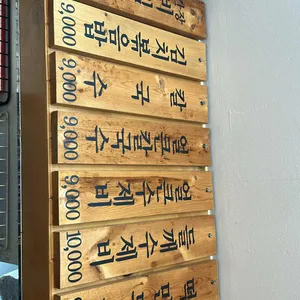 김치볶음밥 9,000
칼국수 9,000
얼큰칼국수 9,000
얼큰수제비 9,000
들깨수제비 10,000